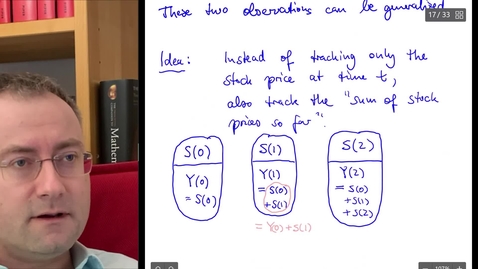 These two observations can be generalized
17 / 33
Idea: Instead of tracking only the
stock price at time t,
also track the "sum of stock
prices so far".
S(0)
Y(0)
= S(0)
S(1)
Y(1)
= S(0)
+ S(1)
= Y(0) + S(1)
S(2)
Y(2)
= S(0)
+ S(1)
+ S(2)
Mathem
107%